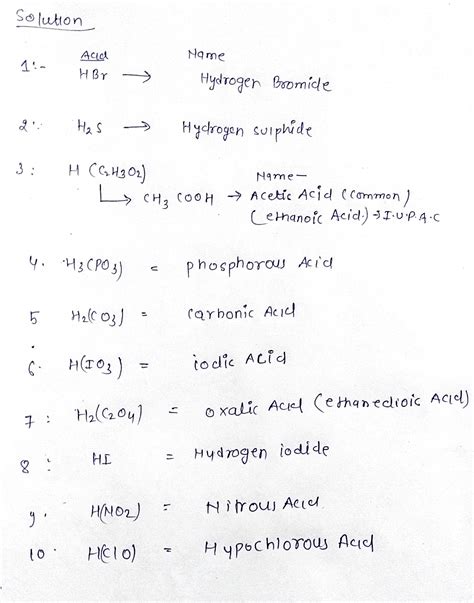 Solution
Acid Name
1:- HBr → Hydrogen Bromide
2:. H2S → Hydrogen sulphide
3: H (C2H3O2) Name-
↳ CH3 COOH → Acetic Acid (common)
(ethanoic Acid) → I.U.P.A.C
4. H3(PO3) = phosphorous Acid
5 H2(CO3) = carbonic Acid
6. H(IO3) = iodic Acid
7: H2(C2O4) = oxalic Acid (ethanedioic Acid)
8: HI = Hydrogen iodide
9. H(NO2) = Nitrous Acid
10. H(ClO) = Hypochlorous Acid